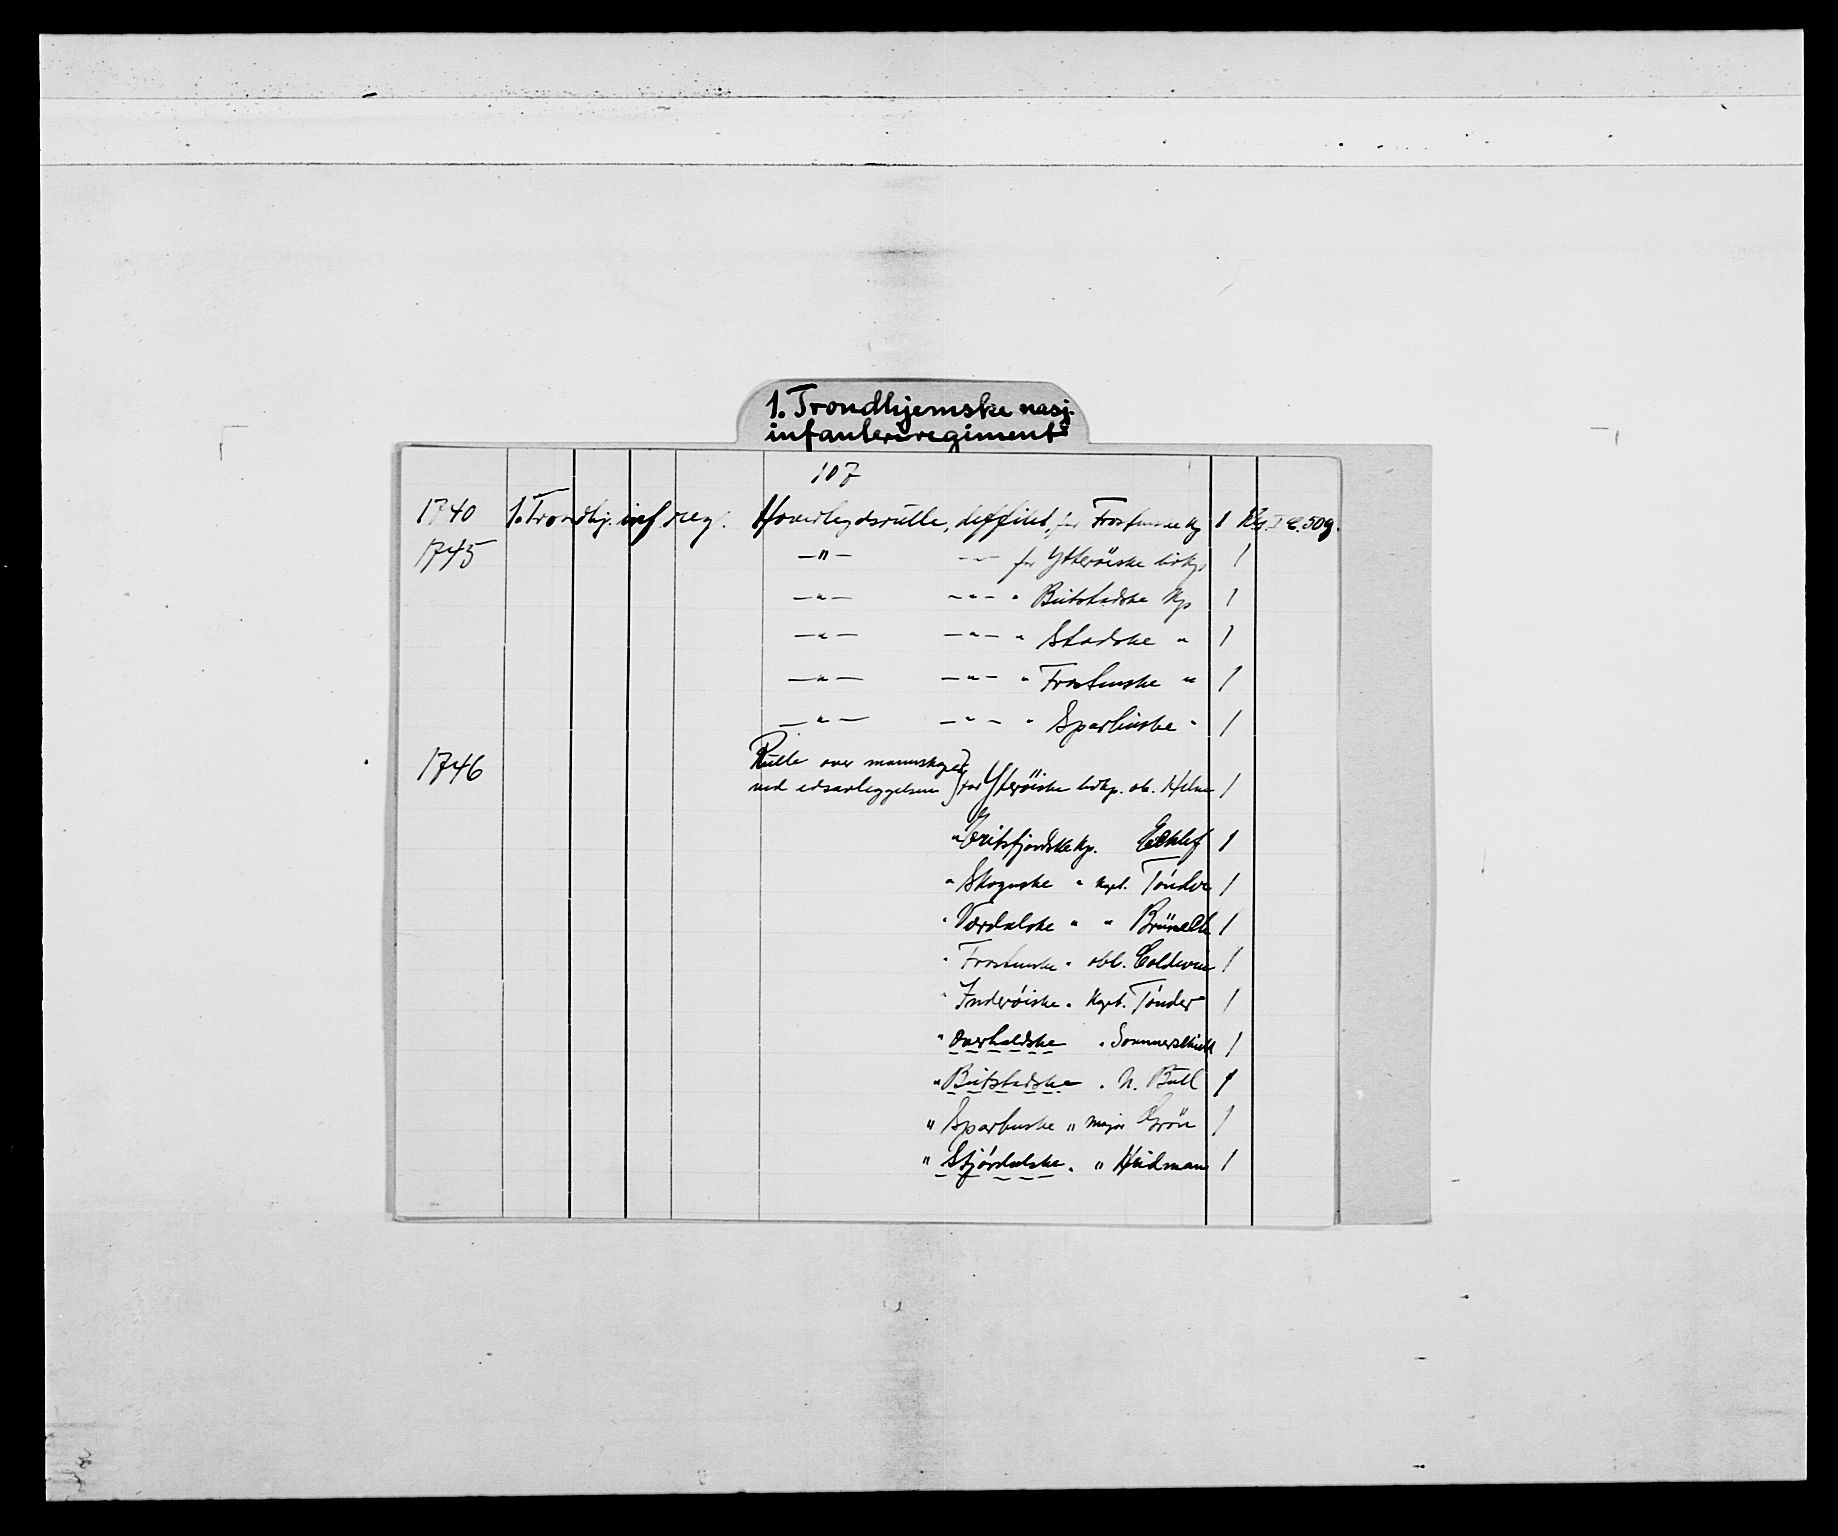 1. Trondhjemske nasj.
infanteriregiment
107
1740 1. Trondhj. inf. reg. Hovedlegdsrulle, deffikt, for Frostenske kp 1
1745 — " — — " — for Ytteröiske livkp. 1
— " — — " — " Bitstadske kp 1
— " — — " — " Stadske " 1
— " — — " — " Frostenske " 1
— " — — " — " Sparbuske " 1
1746 Rulle over mannskapet
ved edsavleggelsen } for Ytteröiske livkp. ob. 1
" Eritsfjordske kp. 1
" Skognske " kapt. Tönder 1
" Værdalske " " 1
" Frostenske " obl. Coldevin 1
" Inderöiske " Kapt. Tönder 1
" Overhaldske " Sommerschield 1
" Bitstadske " N. Bull 1
" Sparbuske " major Grön 1
" Stjördalske " " Heidman 1